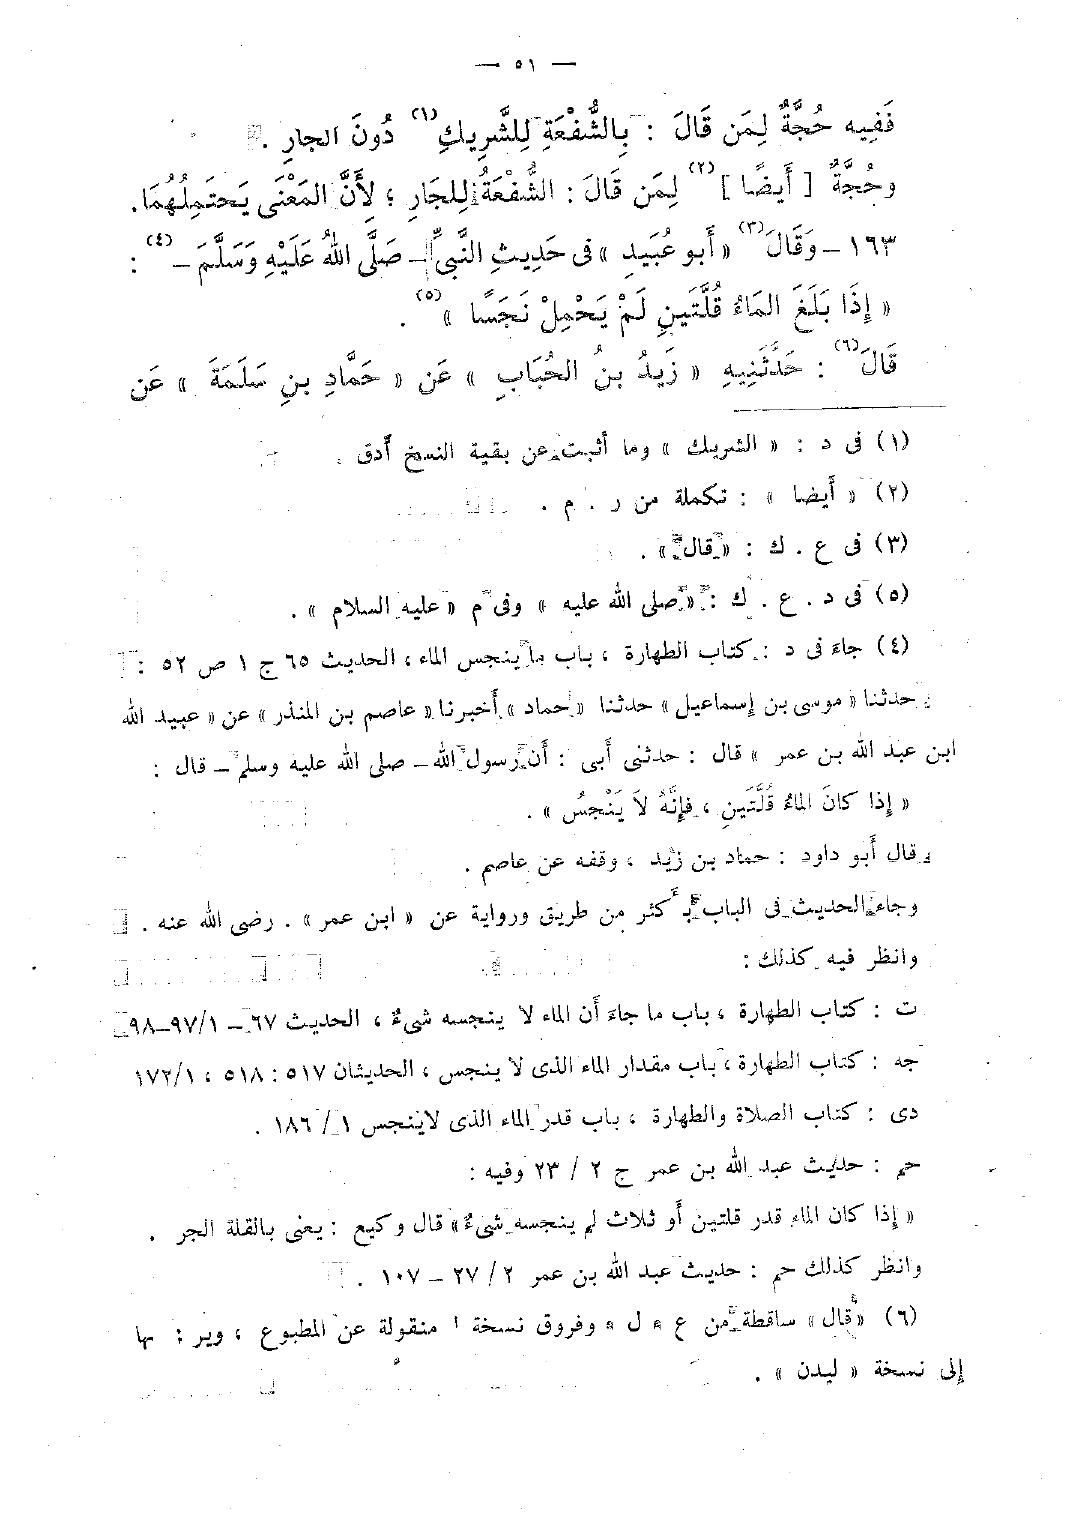 — ٥١ —
فَفِيه حُجَّةٌ لِمَن قَالَ : بِالشُّفْعَةِ لِلشَّرِيكِ (١) دُونَ الجارِ .
وحُجَّةٌ [ أَيضًا ] (٢) لِمَن قَالَ : الشُّفْعَةُ لِلجَارِ ؛ لِأَنَّ المَعْنَى يَحتَمِلُهُمَا.
١٦٣ – وَقَالَ (٣) « أَبو عُبَيدِ » فى حَدِيثِ النَّبىِّ – صَلَّى اللهُ عَلَيْهِ وَسَلَّمَ – (٤) :
« إِذَا بَلَغَ المَاءُ قُلَّتَينِ لَمْ يَحْمِلْ نَجَسًا » (٥) .
قَالَ (٦) : حَدَّثَنِيهِ « زَيدُ بنُ الحُبَابِ » عَن « حَمَّادِ بنِ سَلَمَةَ » عَن
(١) فى د : « الشريك » وما أثبت عن بقية النسخ أدق .
(٢) « أَيضا » : تكملة من ر . م .
(٣) فى ع . ك : « قال » .
(٥) فى د . ع . ك : « صلى الله عليه » وفى م « عليه السلام » .
(٤) جاء فى د : كتاب الطهارة ، باب ما ينجس الماء ، الحديث ٦٥ ج ١ ص ٥٢ :
حدثنا « موسى بن إسماعيل » حدثنا « حماد » أخبرنا « عاصم بن المنذر » عن « عبيد الله
ابن عبد الله بن عمر » قال : حدثنى أَبى : أَن رسول الله – صلى الله عليه وسلم – قال :
« إِذا كانَ الماءُ قُلَّتَينِ ، فإِنَّهُ لاَ يَنْجسُ » .
قال أَبو داود : حماد بن زيد ، وقفه عن عاصم .
وجاء الحديث فى الباب بأَكثر من طريق ورواية عن « ابن عمر » . رضى الله عنه .
وانظر فيه كذلك :
ت : كتاب الطهارة ، باب ما جاءَ أَن الماء لا ينجسه شىءٌ ، الحديث ٦٧ – ٩٧/١–٩٨
جه : كتاب الطهارة ، باب مقدار الماء الذى لا ينجس ، الحديثان ٥١٧ : ٥١٨ ، ١٧٢/١
دى : كتاب الصلاة والطهارة ، باب قدر الماء الذى لاينجس ١ / ١٨٦ .
حم : حديث عبد الله بن عمر ج ٢ / ٢٣ وفيه :
« إِذا كان الماء قدر قلتين أَو ثلاث لم ينجسه شىءٌ » قال وكيع : يعنى بالقلة الجر .
وانظر كذلك حم : حديث عبد الله بن عمر ٢ / ٢٧ – ١٠٧ .
(٦) « قال » ساقطة من ع ، ل ، وفروق نسخة ا منقولة عن المطبوع ، بها
إِلى نسخة « ليدن » .